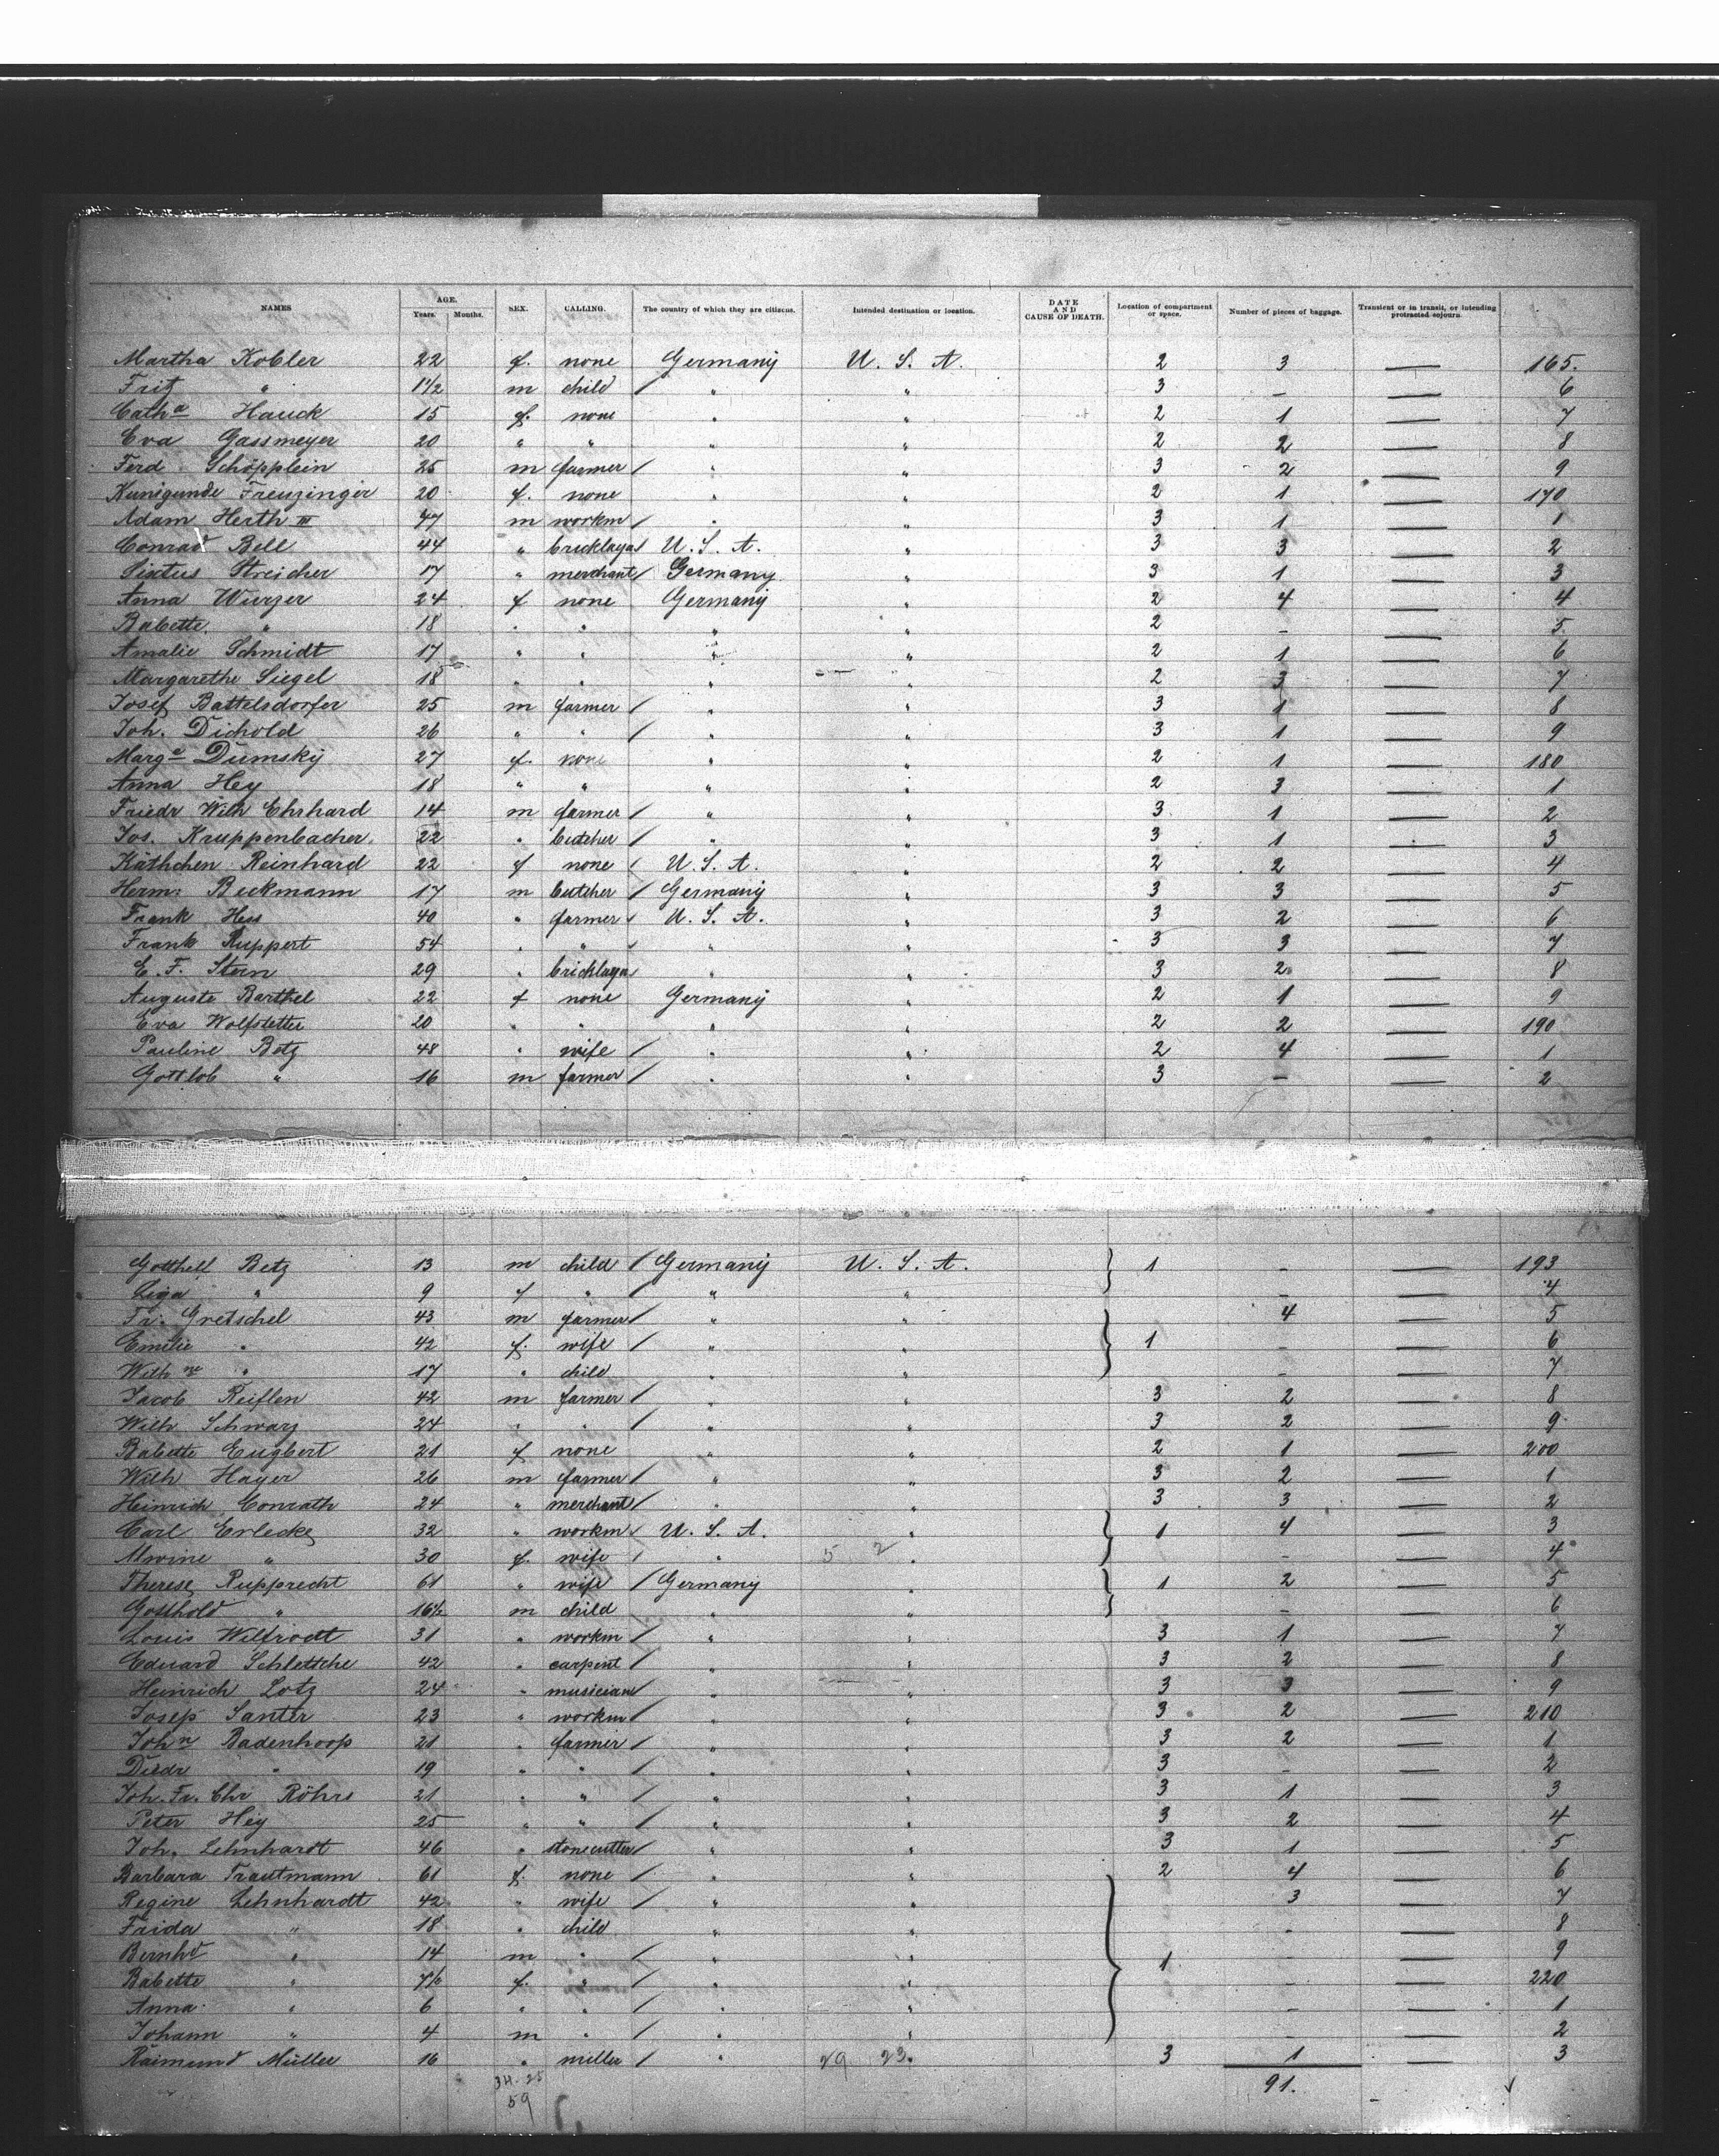 NAMES AGE. Years. Months. SEX. CALLING. The country of which they are citizens. Intended destination or location. DATE AND CAUSE OF DEATH. Location of compartment or space. Number of pieces of baggage. Transient or in transit, or intending protracted sojourn.
Martha Kobler 22 f. none Germany U. S. A. 2 3 — 165.
Fritz " 1 1/2 m child / " " 3 – — 6
Cath a Hauck 15 f. none " " 2 1 — 7
Eva Gassmeyer 20 " " " 2 2 — 8
Ferd. Schöpplein 25 m farmer / " " 3 2 — 9
Kunigunde Freuzinger 20 f. none " " 2 1 — 170
Adam Herth III 47 m workm / " " 3 1 — 1
Conrad Bell 44 " bricklayer U. S. A. " 3 3 — 2
Sixtus Streicher 17 " merchant / Germany " 3 1 — 3
Anna Wurzer 24 f none Germany " 2 4 — 4
Babette " 18 " " " " 2 – — 5
Amalie Schmidt 17 " " " " 2 1 — 6
Margarethe Siegel 18 " " " " 2 3 — 7
Josef Battelsdorfer 25 m farmer / " " 3 1 — 8
Joh. Dichold 26 " " / " " 3 1 — 9
Marg a Dumsky 27 f. none " " 2 1 — 180
Anna Hey 18 " " " " 2 3 — 1
Friedr Wilh Ehrhard 14 m farmer / " " 3 1 — 2
Jos. Kruppenbacher 22 " butcher / " " 3 1 — 3
Käthchen Reinhard 22 f none U. S. A. " 2 2 — 4
Herm. Beckmann 17 m butcher / Germany " 3 3 — 5
Frank Hess 40 " farmer U. S. A. " 3 2 — 6
Frank Ruppert 54 " " " " 3 3 — 7
E. F. Stern 29 " bricklayer " " 3 2 — 8
Auguste Barthel 22 f none Germany " 2 1 — 9
Eva Wolfstetter 20 " " " " 2 2 — 190
Pauline Betz 48 " wife / " " 2 4 — 1
Gottlob " 16 m farmer / " " 3 – — 2
Gotthelf Betz 13 m child / Germany U. S. A. 1 – — 193
" 9 f " / " " – — 4
Fr. Gretschel 43 m farmer / " " 4 — 5
Emilie " 42 f. wife / " " 1 – — 6
Wilh ne " 17 " child " " – — 7
Jacob Reiflen 42 m farmer / " " 3 2 — 8
Wilh Schwarz 24 " " / " " 3 2 — 9
Babette Eugbert 21 f none " " 2 1 — 200
Wilh Hayer 26 m farmer / " " 3 2 — 1
Heinrich Conrath 24 " merchant / " " 3 3 — 2
Carl Erlecke 32 " workm U. S. A. " 1 4 — 3
Alwine " 30 f. wife " 5 2 " – — 4
Therese Rupprecht 61 " wife / Germany " 1 2 — 5
Gotthold " 16 1/2 m child " " – — 6
Louis Wilfrodt 31 " workm / " " 3 1 — 7
Eduard Schlettche 42 " carpent / " " 3 2 — 8
Heinrich Lotz 24 " musician / " " 3 3 — 9
Josef Santer 23 " workm / " " 3 2 — 210
Joh n Badenhoop 21 " farmer / " " 3 2 — 1
Diedr " 19 " " / " " 3 – — 2
Joh. Fr. Chr Röhrs 21 " " / " " 3 1 — 3
Peter Hey 25 " " / " " 3 2 — 4
Joh. Lehnhardt 46 " stonecutter / " " 3 1 — 5
Barbara Trautmann 61 f. none / " " 2 4 — 6
Regine Lehnhardt 42 " wife / " " 3 — 7
Frida " 18 " child " " – — 8
Bernhd " 14 m " / " " 1 – — 9
Babette " f. " / " " – — 220
Anna " 6 " " / " " – — 1
Johann " 4 m " / " " – — 2
Raimund Müller 16 " miller / " 29 23 " 3 1 — 3
34. 25 91.
59